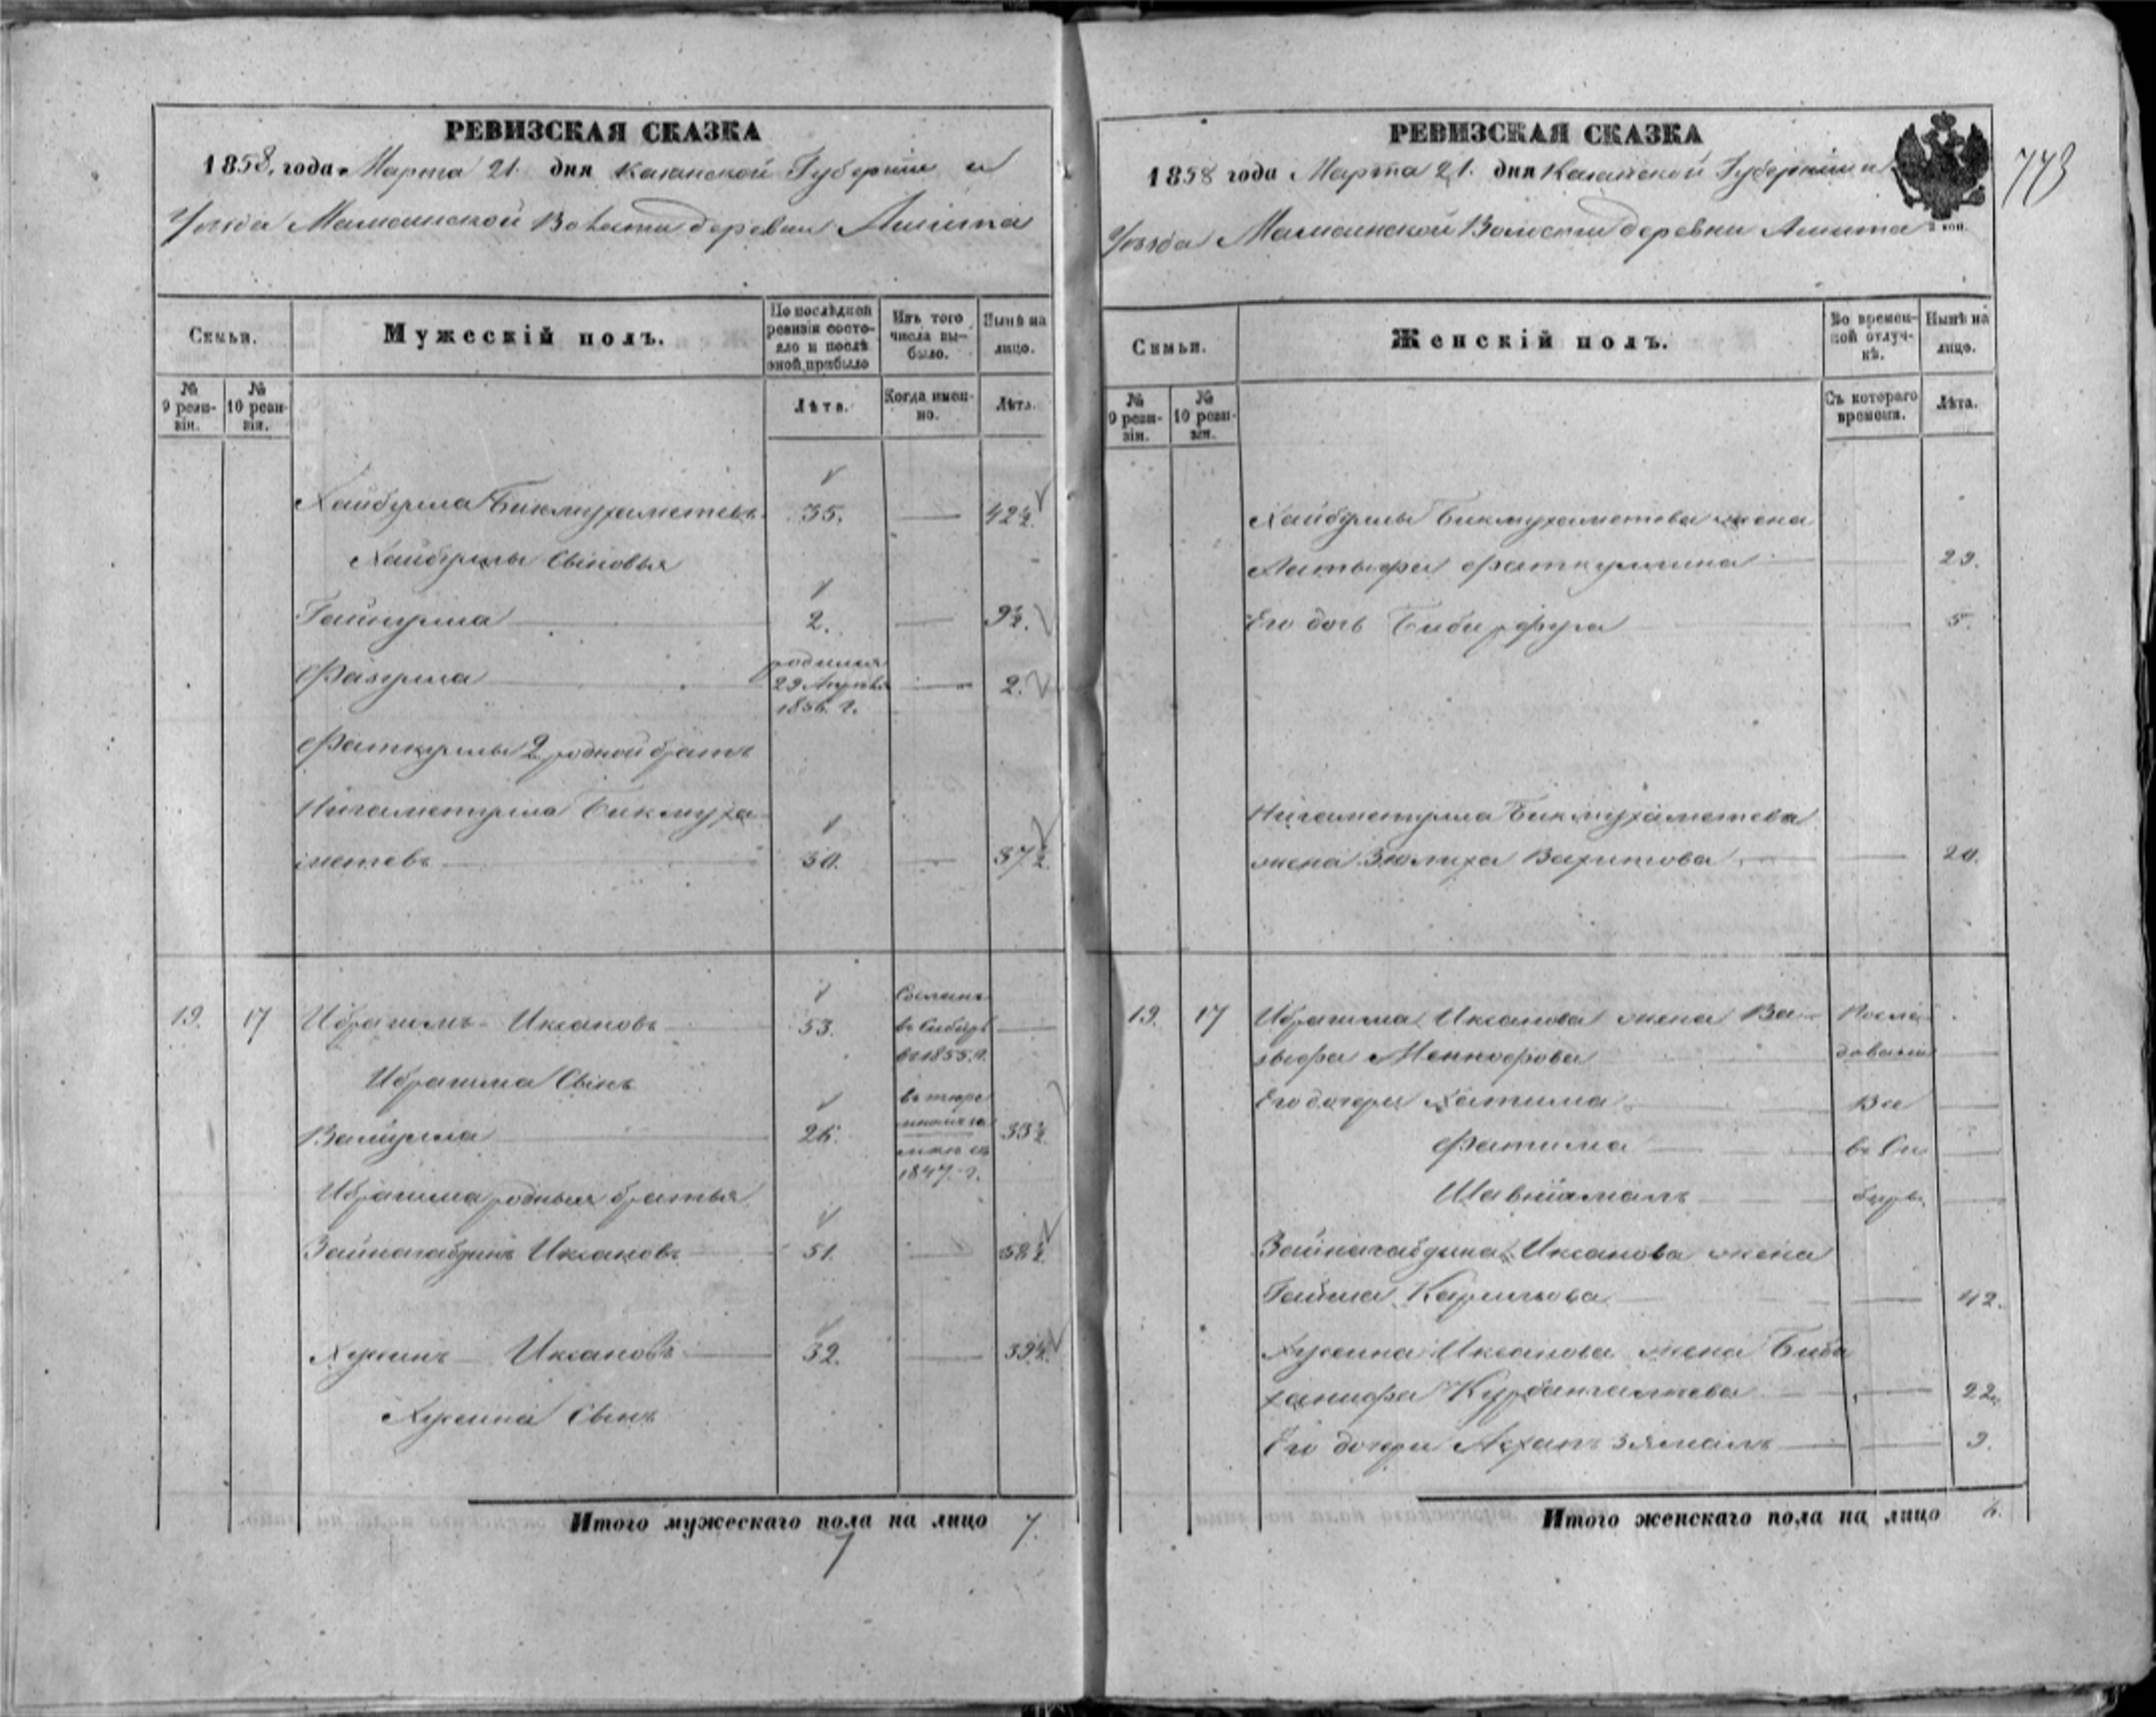 РЕВИЗСКАЯ СКАЗКА
1858 года Марта 21 дня Казанской Губерніи и
Уезда Мамсинской Волости деревни Ашита
Семьи.
Мужескій полъ.
По послѣдней ревизіи состояло и послѣ оной прибыло
Изъ того числа выбыло.
Нынѣ на лицо.
№ 9 ревизіи.
№ 10 ревизіи.
Лѣта.
Когда именно.
Лѣта.
Хайбулла Бикмухаметевъ 35. 42½.
Хайбуллы Сыновья
Гайнулла 2. 9½.
Фазулла родился 29 1856. г. 2.
Фаткуллы 2 родной братъ
Нигаметулла Бикмуха
метевъ 30. 37½.
19. 17 Ибрагимъ Иксановъ 53. Сосланъ въ Сибирь въ 1855. г.
Ибрагима Сынъ
Валиулла 26. 1847. г. 33½
Ибрагима родныя братья
Зайнагабдинъ Иксановъ 51. 58½.
Хусаинъ Иксановъ 32. 39½.
Хусаина Сынъ
Итого мужескаго пола на лицо 7.
7
РЕВИЗСКАЯ СКАЗКА
773
1858 года Марта 21. дня Казанской Губерніи и
Уезда Мамсинской Волости деревни Ашита
2 коп.
Семьи.
Женскій полъ.
Во временной отлучкѣ.
Нынѣ на лицо.
№ 9 ревизіи.
№ 10 ревизіи.
Съ котораго времени.
Лѣта.
Хайбуллы Бикмухаметева жена
Латыфа Фаткуллина 29.
Его дочь Биби 5.
Нигаметулла Бикмухаметева
жена Зюлиха Вахитова 20.
19. 17 Ибрагима Иксанова жена Ва- После-
зыфа довали
Его дочери Хатима За
Фатима въ Си
Шавкіямалъ бирь.
Зайнагабдина Иксанова жена
Галима Каримова 42.
Хусаина Иксанова жена Биби
ханифа Курбангалеева 22.
Его дочери 9.
Итого женскаго пола на лицо 6.